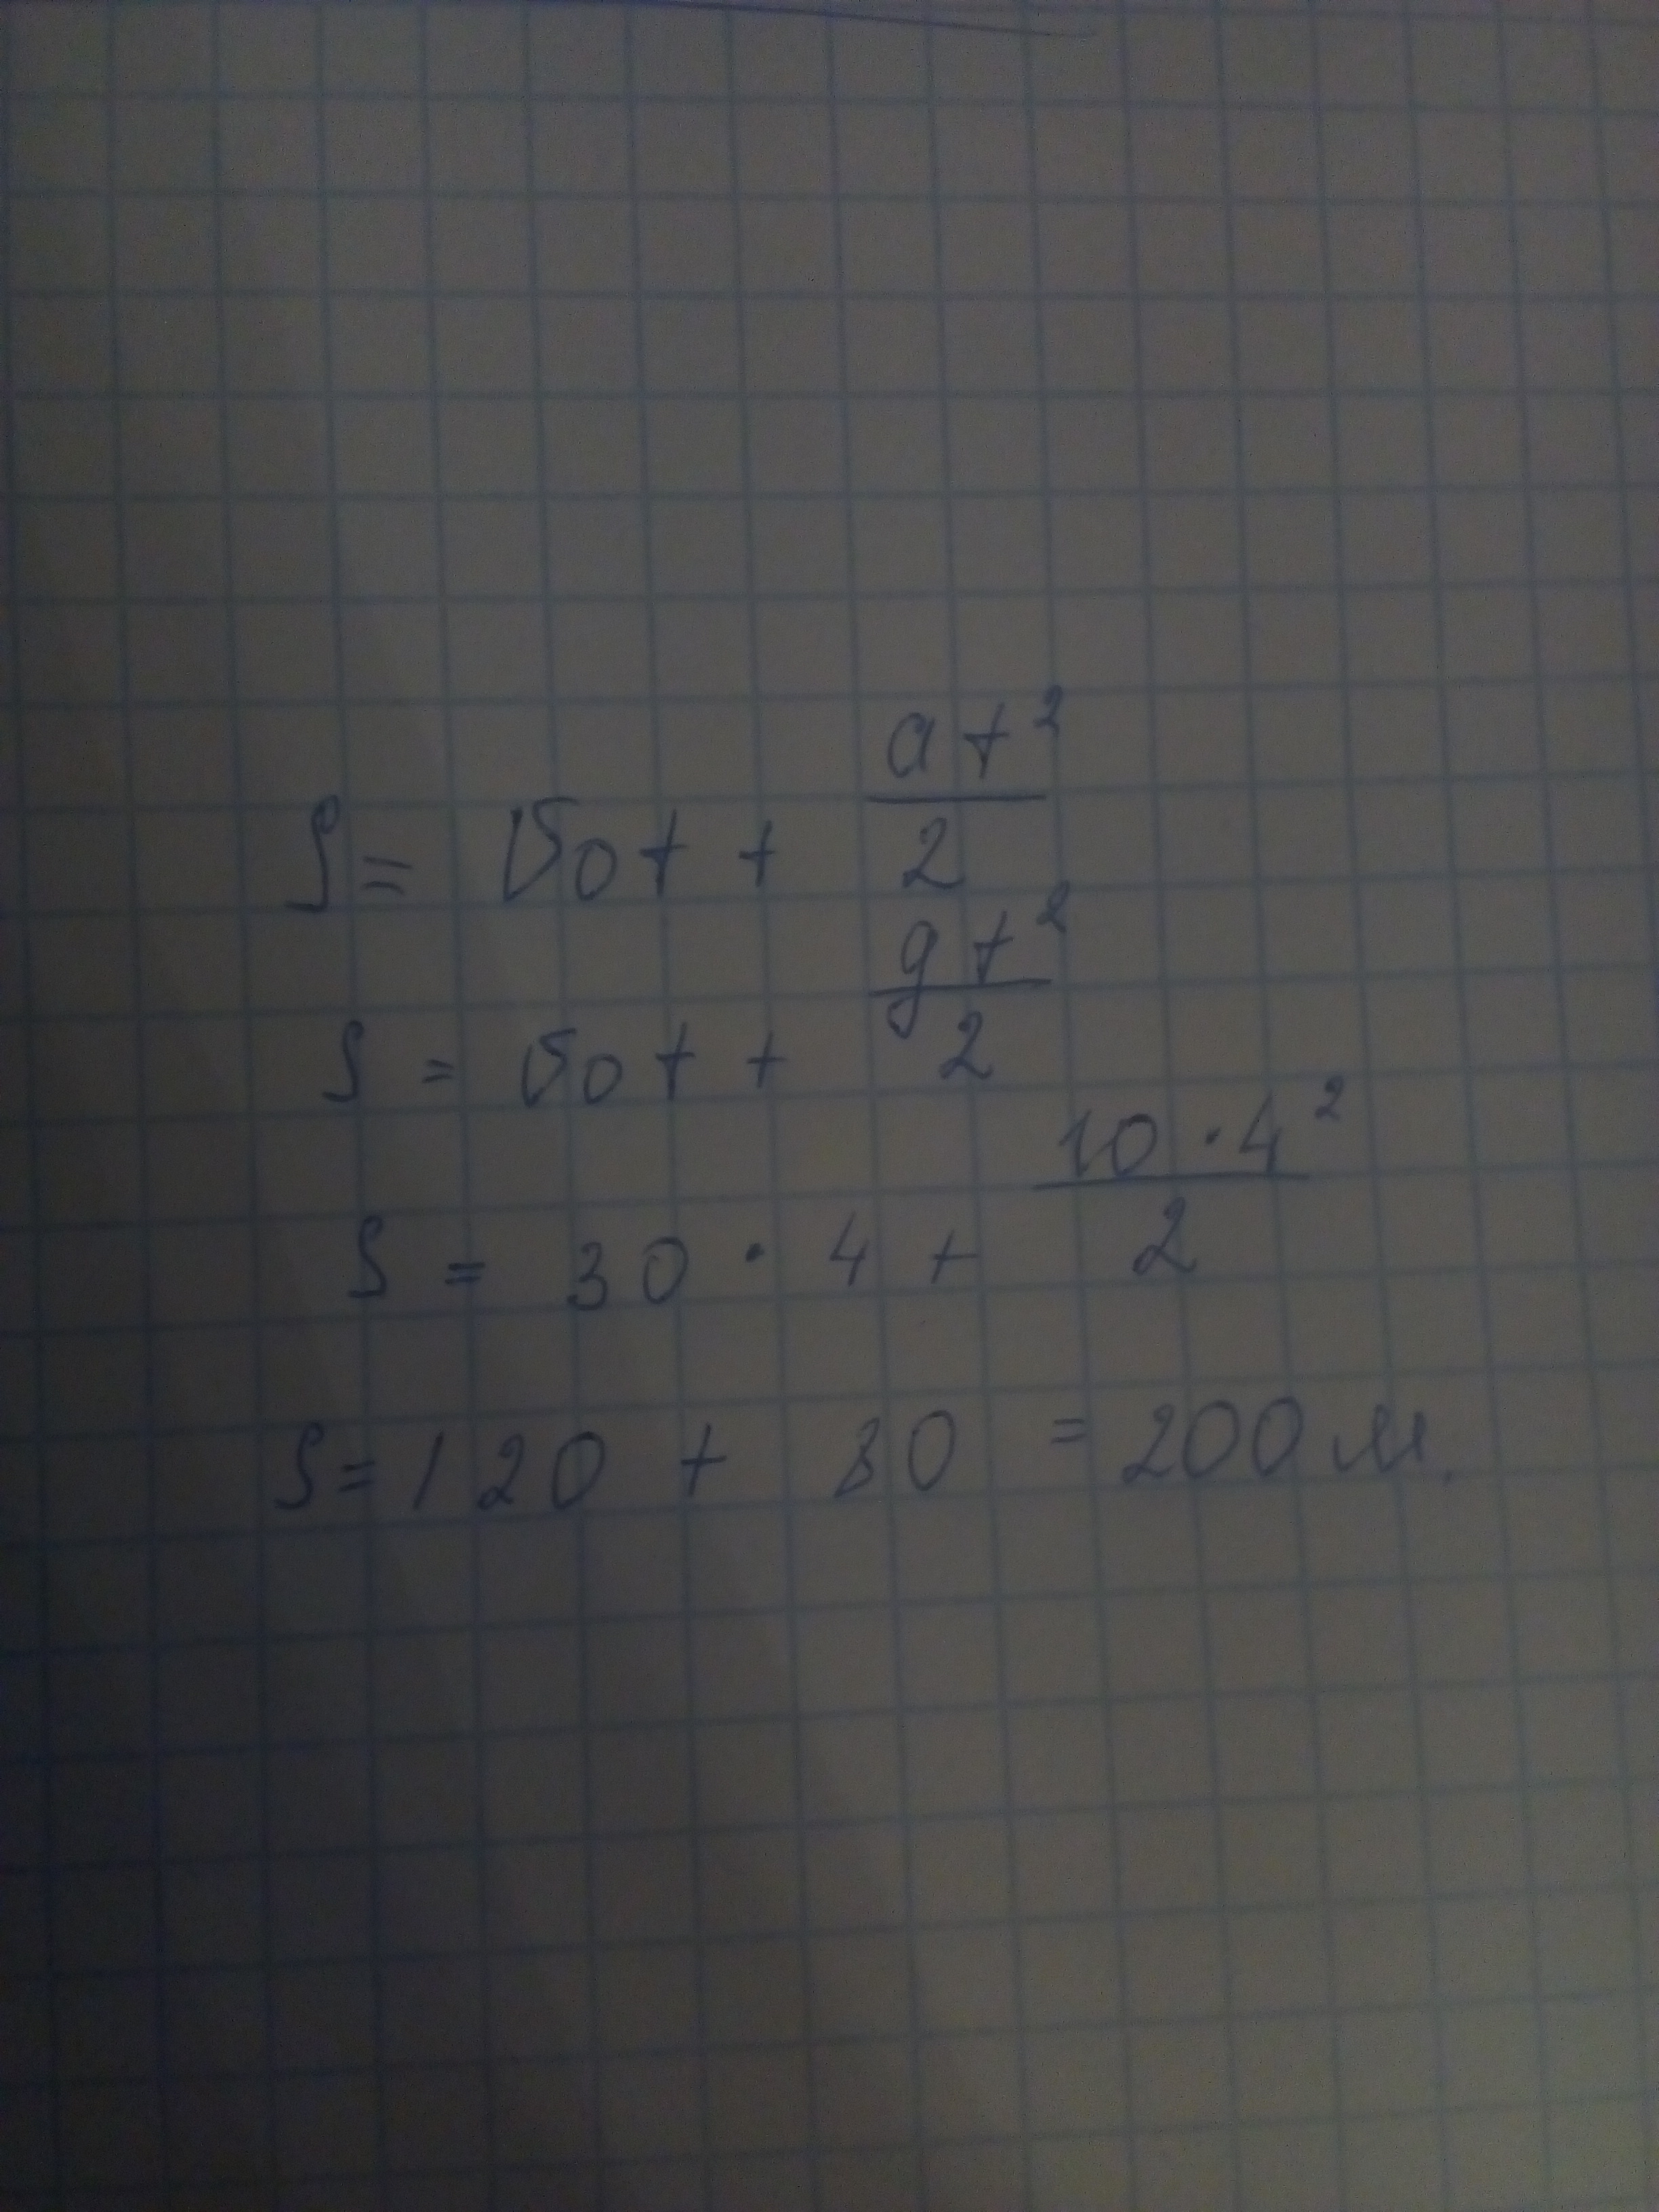 S = v₀t + at²/2
S = v₀t + gt²/2
S = 30 · 4 + 10 · 4²/2
S = 120 + 80 = 200 м.